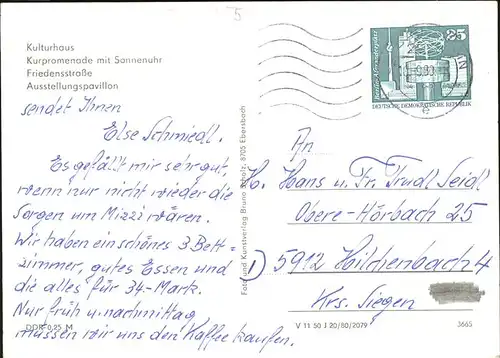 5
Kulturhaus
Kurpromenade mit Sonnenuhr
Friedensstraße
Ausstellungspavillon
sendet Ihnen
Else Schmiedl.
Es gefällt mir sehr gut,
wenn nur nicht wieder die
Sorgen um Mizzi wären.
Wir haben ein schönes 3 Bett=
zimmer, gutes Essen und
die alles für 34,- Mark.
Nur früh u. nachmittag
müssen wir uns den Kaffee kaufen.
DDR 0,25 M
Foto und Kunstverlag Bruno Scholz, 8705 Ebersbach
25
Berlin, Alexanderplatz
DEUTSCHE DEMOKRATISCHE REPUBLIK
An
H. Hans u. Fr. Trudl Seidl
Obere-Hörbach 25
5912 Hilchenbach 4
Krs. Siegen
V 11 50 I 20/80/2079
3665